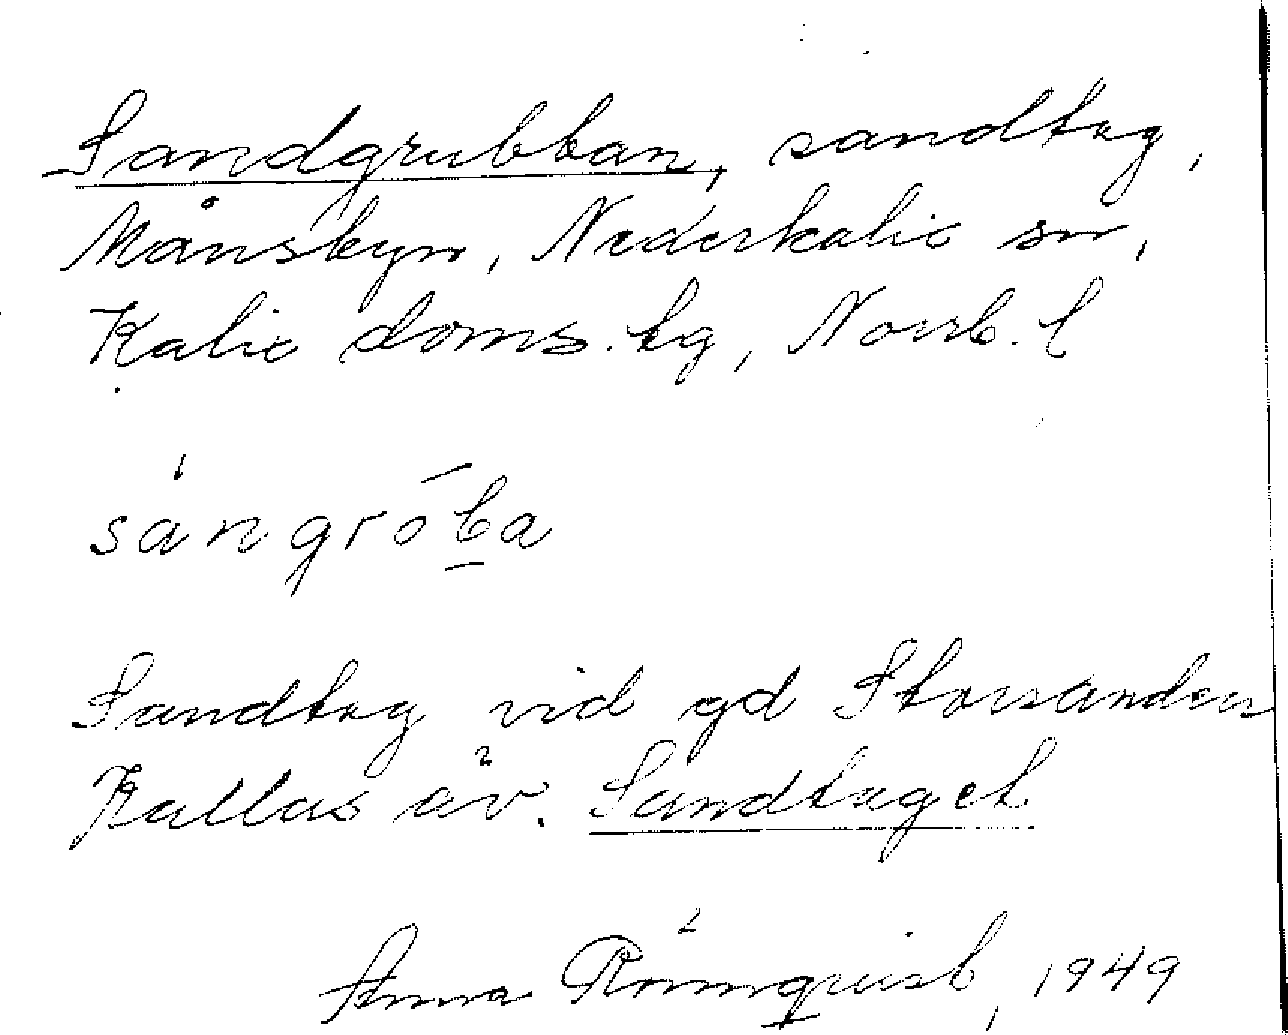 Sandgrubban, sandtag,
Månsbyn, Nederkalix sn,
Kalix doms. tg, Norrb. l
sángróba
Sandtag vid gd Storsanden
Kallas äv. Sandtaget
Anna Römquist, 1949